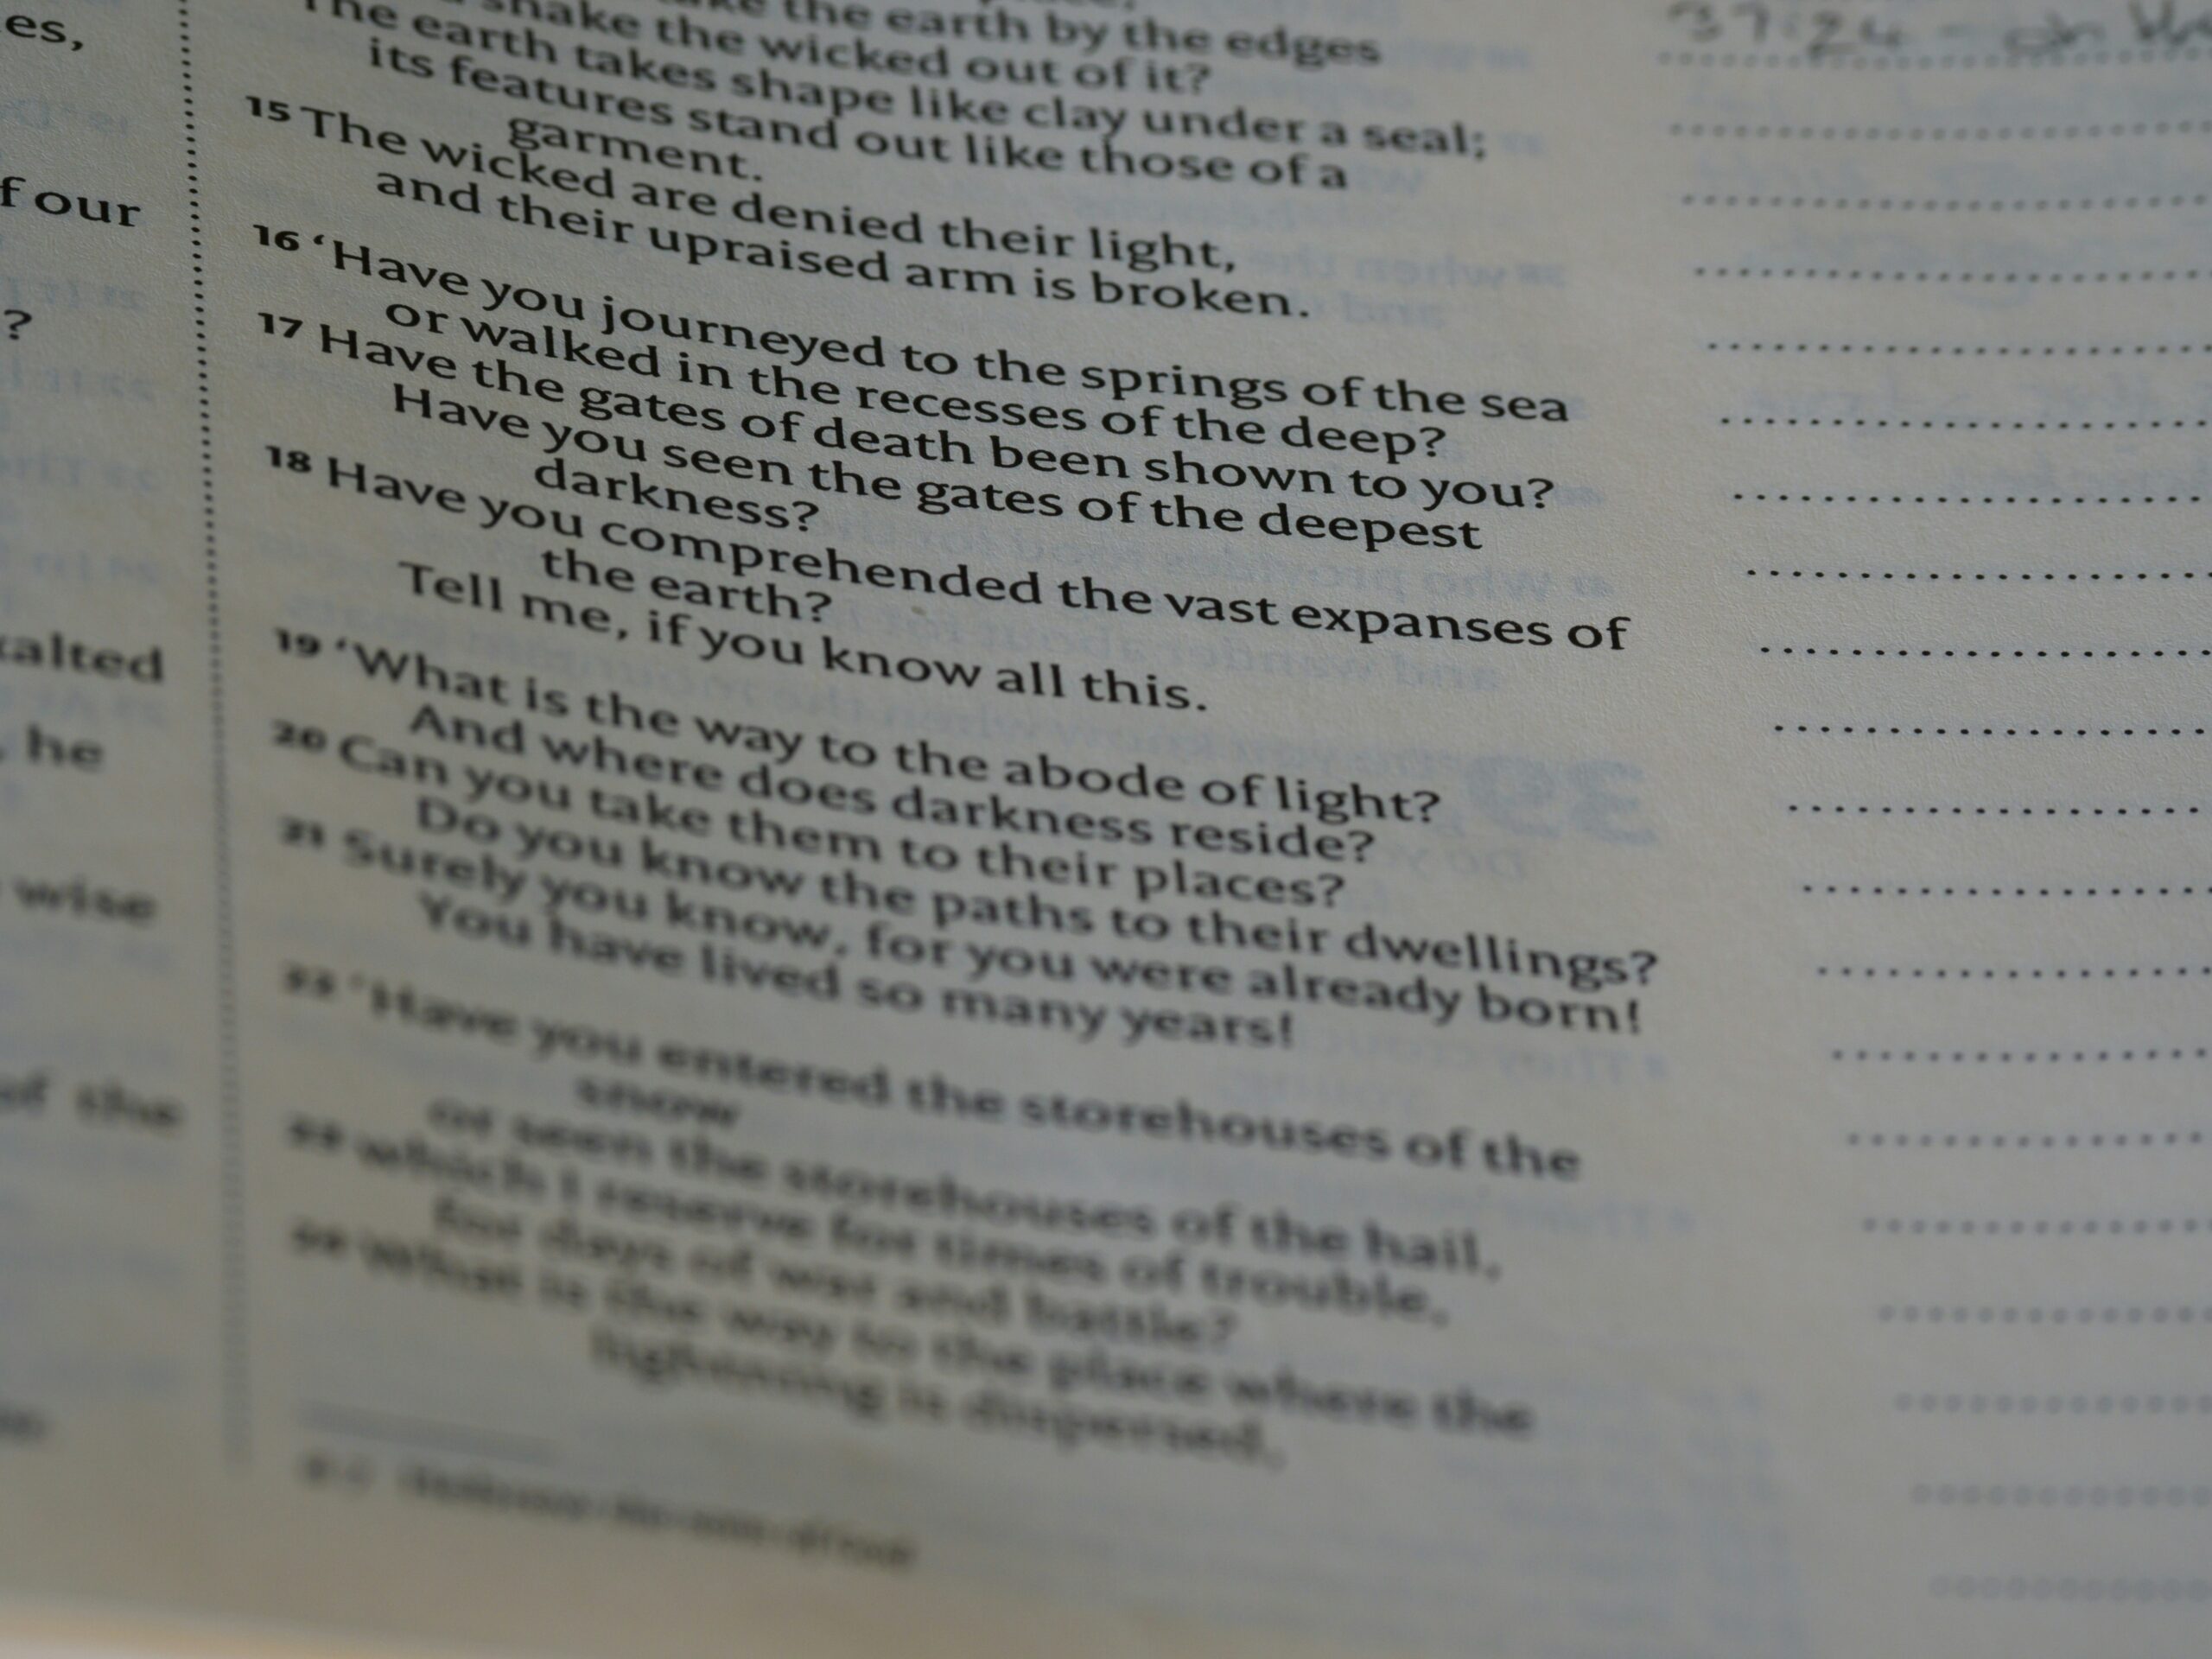 es,
f our
?
alted
, he
wise
of the
the earth by the edges
shake the wicked out of it?
The earth takes shape like clay under a seal;
its features stand out like those of a
garment.
15 The wicked are denied their light,
and their upraised arm is broken.
16 ‘Have you journeyed to the springs of the sea
or walked in the recesses of the deep?
17 Have the gates of death been shown to you?
Have you seen the gates of the deepest
darkness?
18 Have you comprehended the vast expanses of
the earth?
Tell me, if you know all this.
19 ‘What is the way to the abode of light?
And where does darkness reside?
20 Can you take them to their places?
Do you know the paths to their dwellings?
21 Surely you know, for you were already born!
You have lived so many years!
22 ‘Have you entered the storehouses of the
snow
or seen the storehouses of the hail,
23 which I reserve for times of trouble,
for days of war and battle?
24 What is the way to the place where the
lightning is dispersed,
37:24 - on